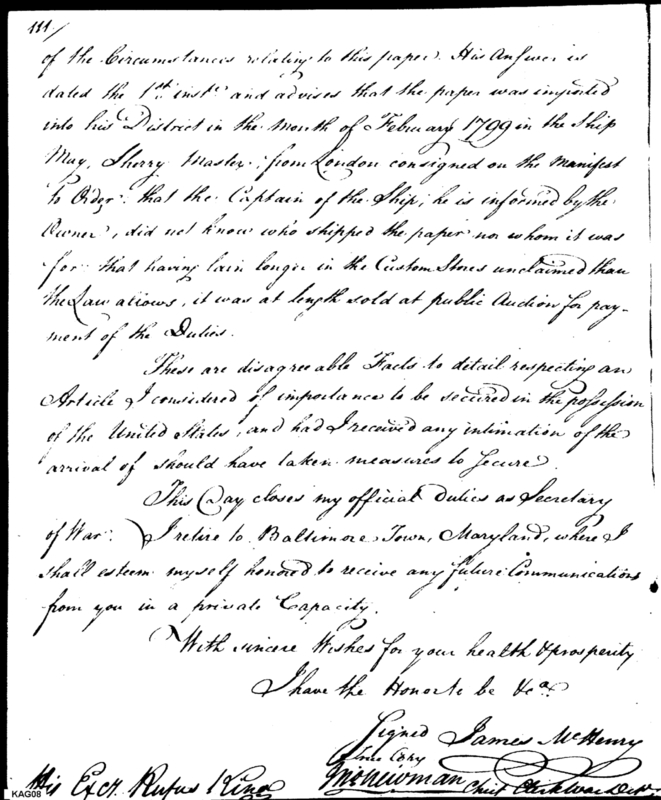 111/
of the Circumstances relating to this paper. His Answer is
dated the 1st. inst. and advises that the paper was imported
into his District in the Month of February 1799 in the Ship
May, Sherry Master, from London consigned on the Manifest
to Order: that the Captain of the Ship, he is informed by the
Owner, did not know who shipped the paper nor whom it was
for: that having lain longer in the Custom Stores unclaimed than
the Law allows, it was at length sold at public Auction for pay-
ment of the Duties.
These are disagreeable Facts to detail respecting an
Article I considered of importance to be secured in the possession
of the United States, and had I received any intimation of the
arrival of should have taken measures to secure.
This Day closes my official Duties as Secretary
of War. I retire to Baltimore Town, Maryland, where I
shall esteem myself honored to receive any future Communications
from you in a private Capacity.
With sincere Wishes for your health & prosperity
I have the Honor to be &ca.
Signed James McHenry
Copy
Newman Chief Clerk War Dept.
His Excy. Rufus King
KAG08